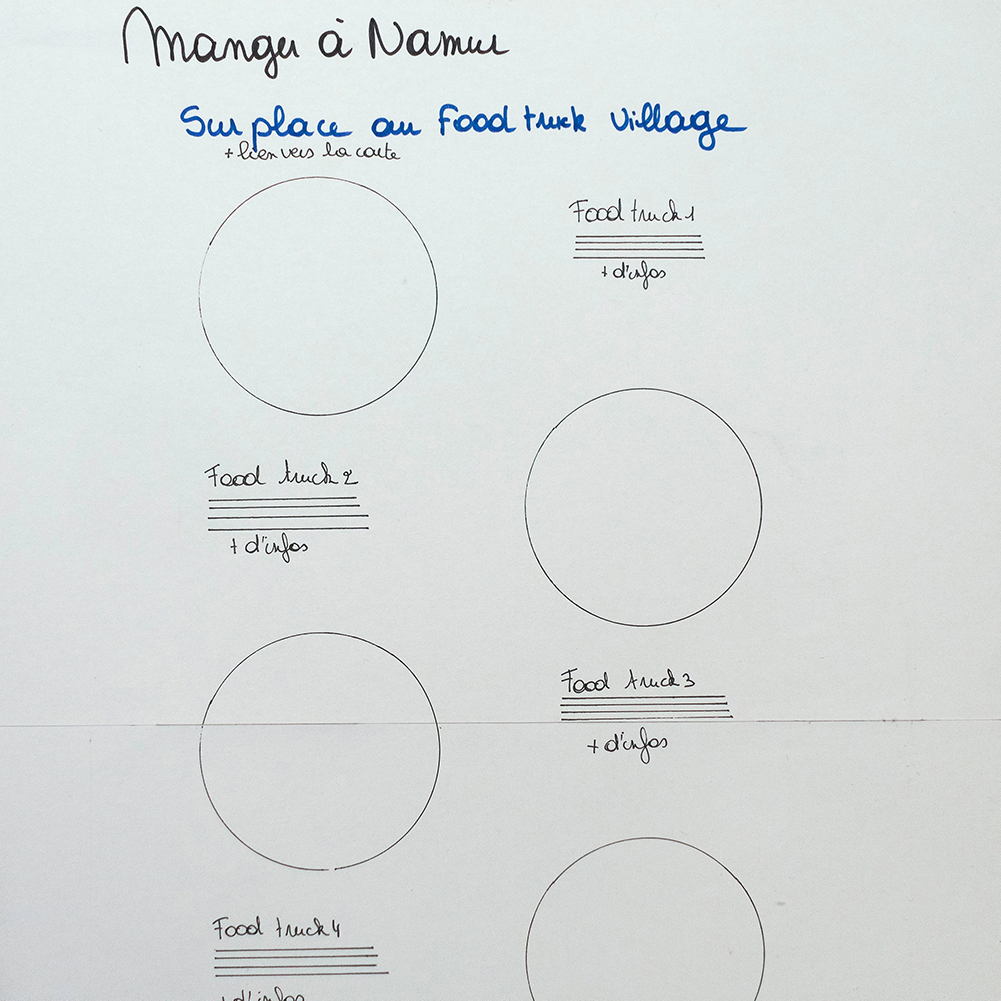 Manger à Namur
Sur place au Food truck Village
+ lien vers la carte
Food truck 1
+ d'infos
Food truck 2
+ d'infos
Food truck 3
+ d'infos
Food truck 4
+ d'infos